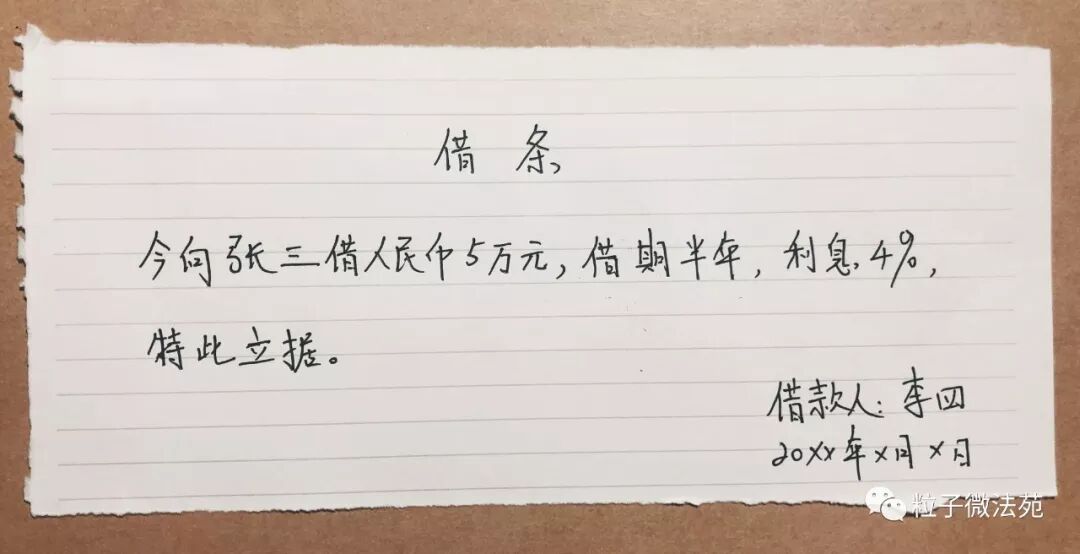 借 条
今向张三借人民币5万元，借期半年，利息4%，
特此立据。
借款人：李四
20XX年X月X日
粒子微法苑